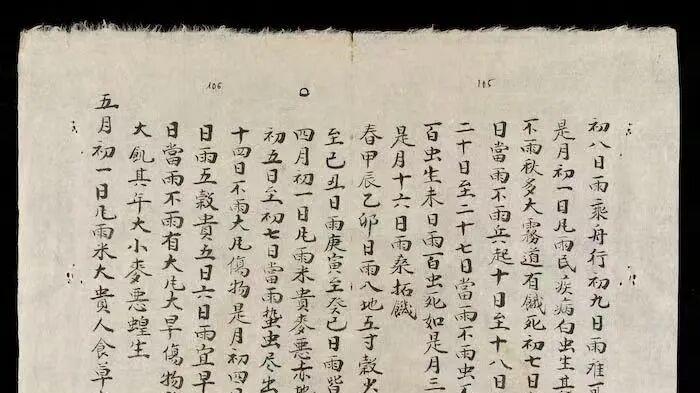 105
106
初八日雨乘舟行初九日雨
是月初一日凨雨民疾病白虫生其
不雨秋多大霧道有餓死初七日
日當雨不雨兵起十日至十八日
二十日至二十七日當雨不雨虫
百虫生未日雨百虫死如是月三
是月十六日雨桒拓饑
春甲辰乙卯日雨入地五寸穀火
至己丑日雨庚寅至癸巳日雨皆
四月初一日凨雨米貴麥惡赤
初五日至初七日當雨蟄虫尽出
十四日不雨大凨傷物是月初四
日雨五穀貴五日六日雨宜早
日當雨不雨有大凨大旱傷物
大飢其年大小麥惡蝗生
五月初一日凨雨米大貴人食草